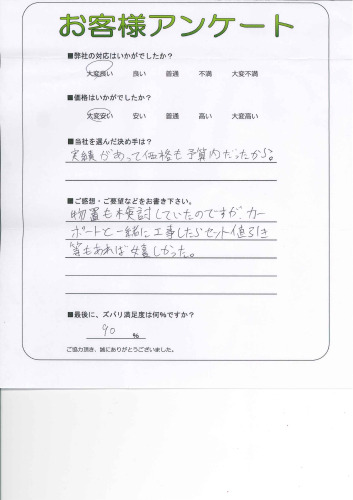 お客様アンケート
■弊社の対応はいかがでしたか？
大変良い 良い 普通 不満 大変不満
■価格はいかがでしたか？
大変安い 安い 普通 高い 大変高い
■当社を選んだ決め手は？
実績があって価格も予算内だったから。
■ご感想・ご要望などをお書き下さい。
物置も検討していたのですが、カー
ポートと一緒に工事したらセット値引き
等もあれば嬉しかった。
■最後に、ズバリ満足度は何%ですか？
90 %
ご協力頂き、誠にありがとうございました。